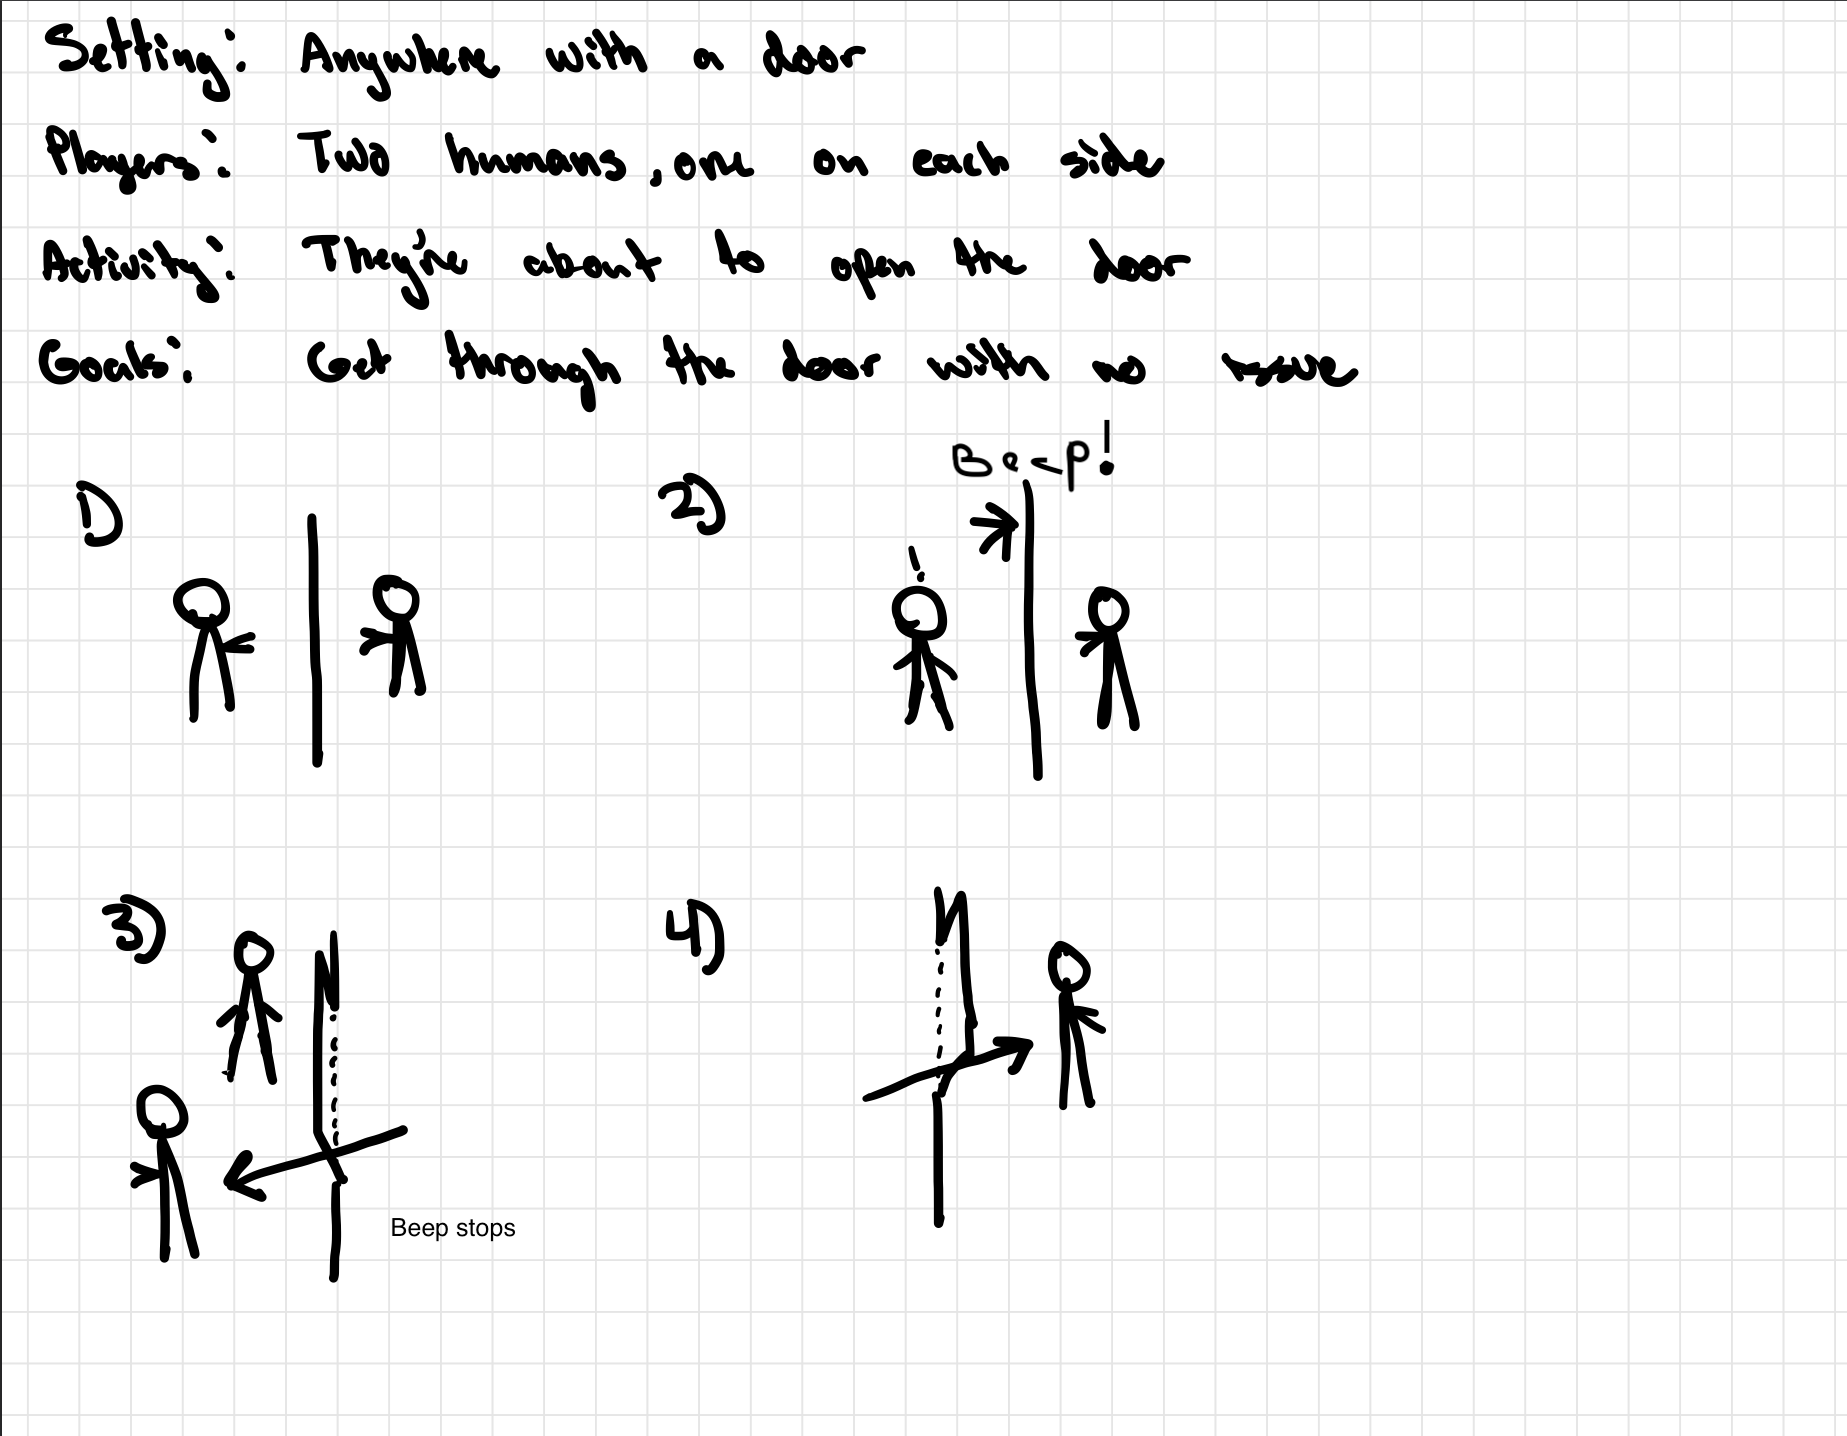 Setting: Anywhere with a door
Players: Two humans, one on each side
Activity: They're about to open the door
Goals: Get through the door with no issue
Beep!
1)
2)
!
3)
4)
Beep stops